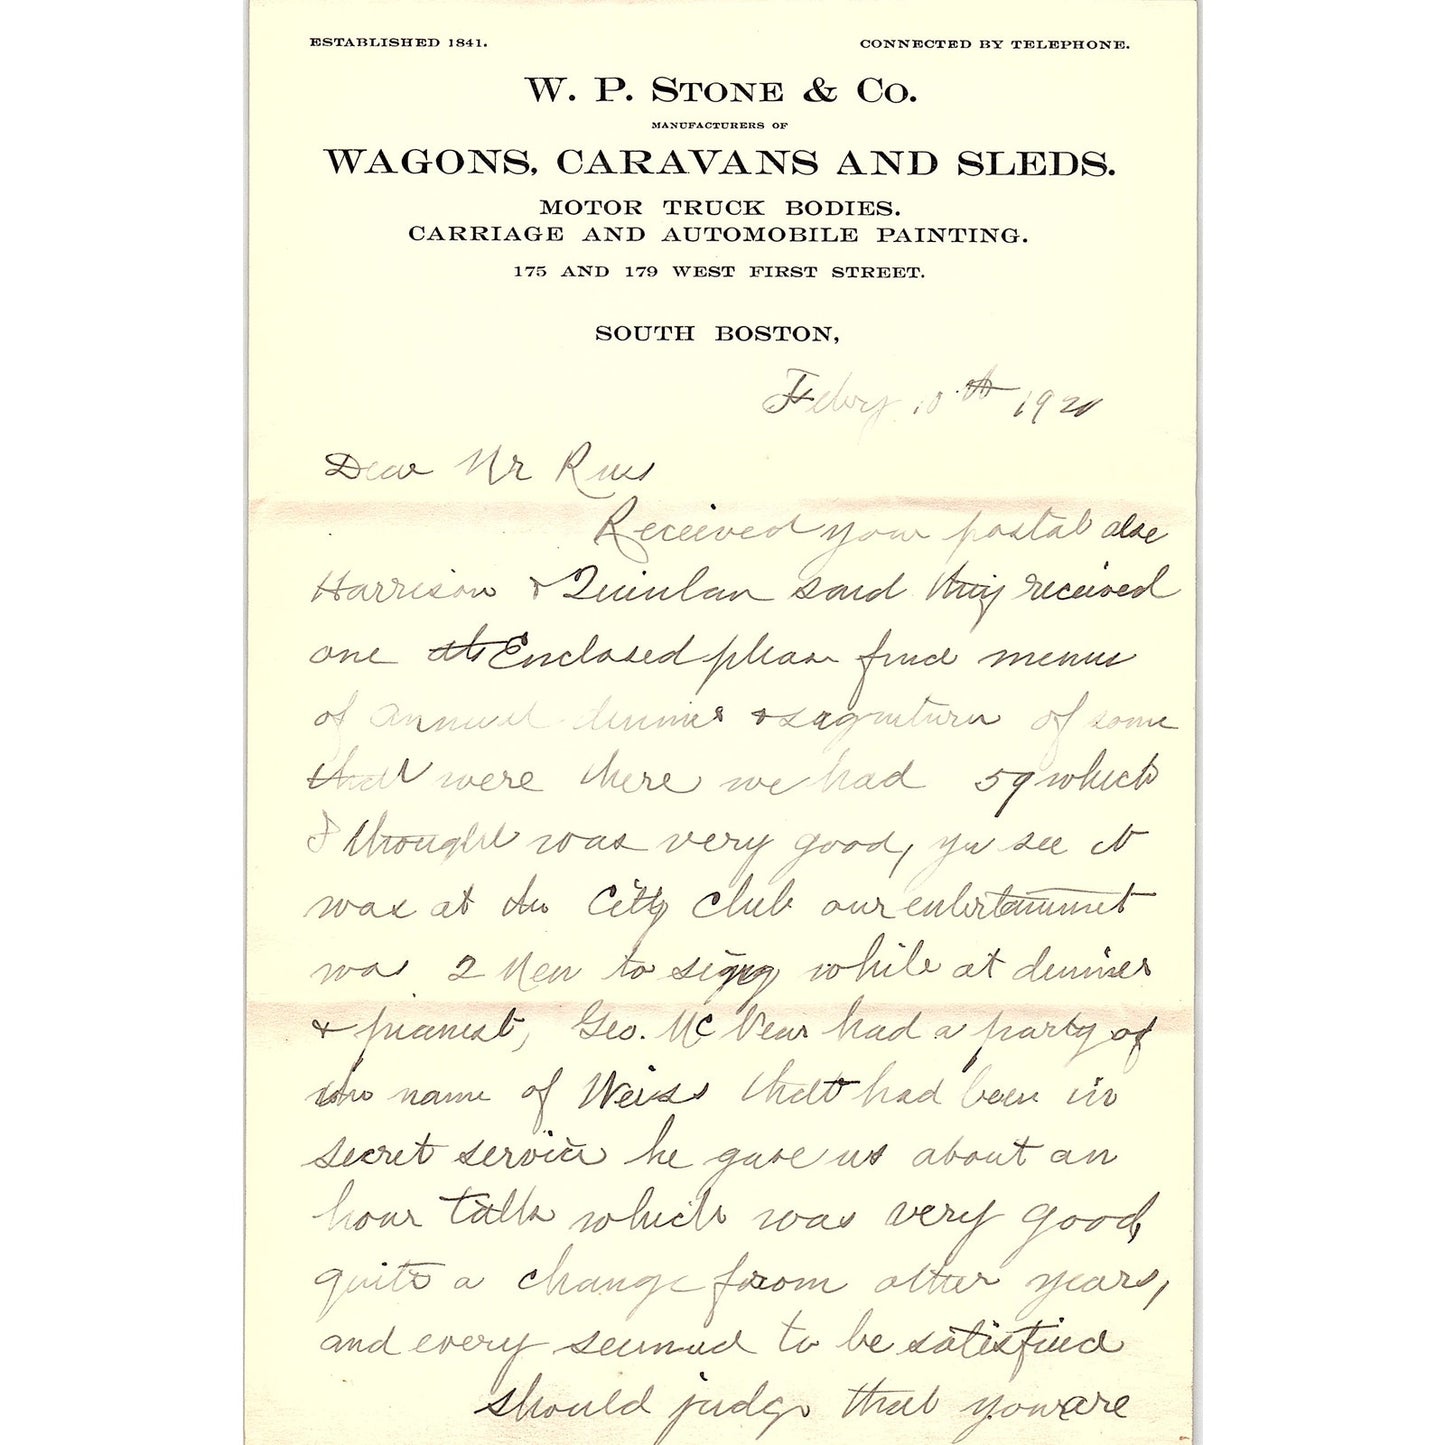 ESTABLISHED 1841.
CONNECTED BY TELEPHONE.
W. P. STONE & CO.
MANUFACTURERS OF
WAGONS, CARAVANS AND SLEDS.
MOTOR TRUCK BODIES.
CARRIAGE AND AUTOMOBILE PAINTING.
175 AND 179 WEST FIRST STREET.
SOUTH BOSTON,
Febry 10th 1920
Dear Mr
Received your postal also
Harrison & Quinlan said they received
one Enclosed please find menu
of annual dinner & signature of some
that were there we had 59 which
I thought was very good, you see it
was at the City Club our entertainment
was 2 Men to sing while at dinner
& pianist, Geo. McVear had a party of
the name of Weiss that had been in
secret service he gave us about an
hour talk which was very good,
quite a change from other years,
and every seemed to be satisfied
should judge that you are